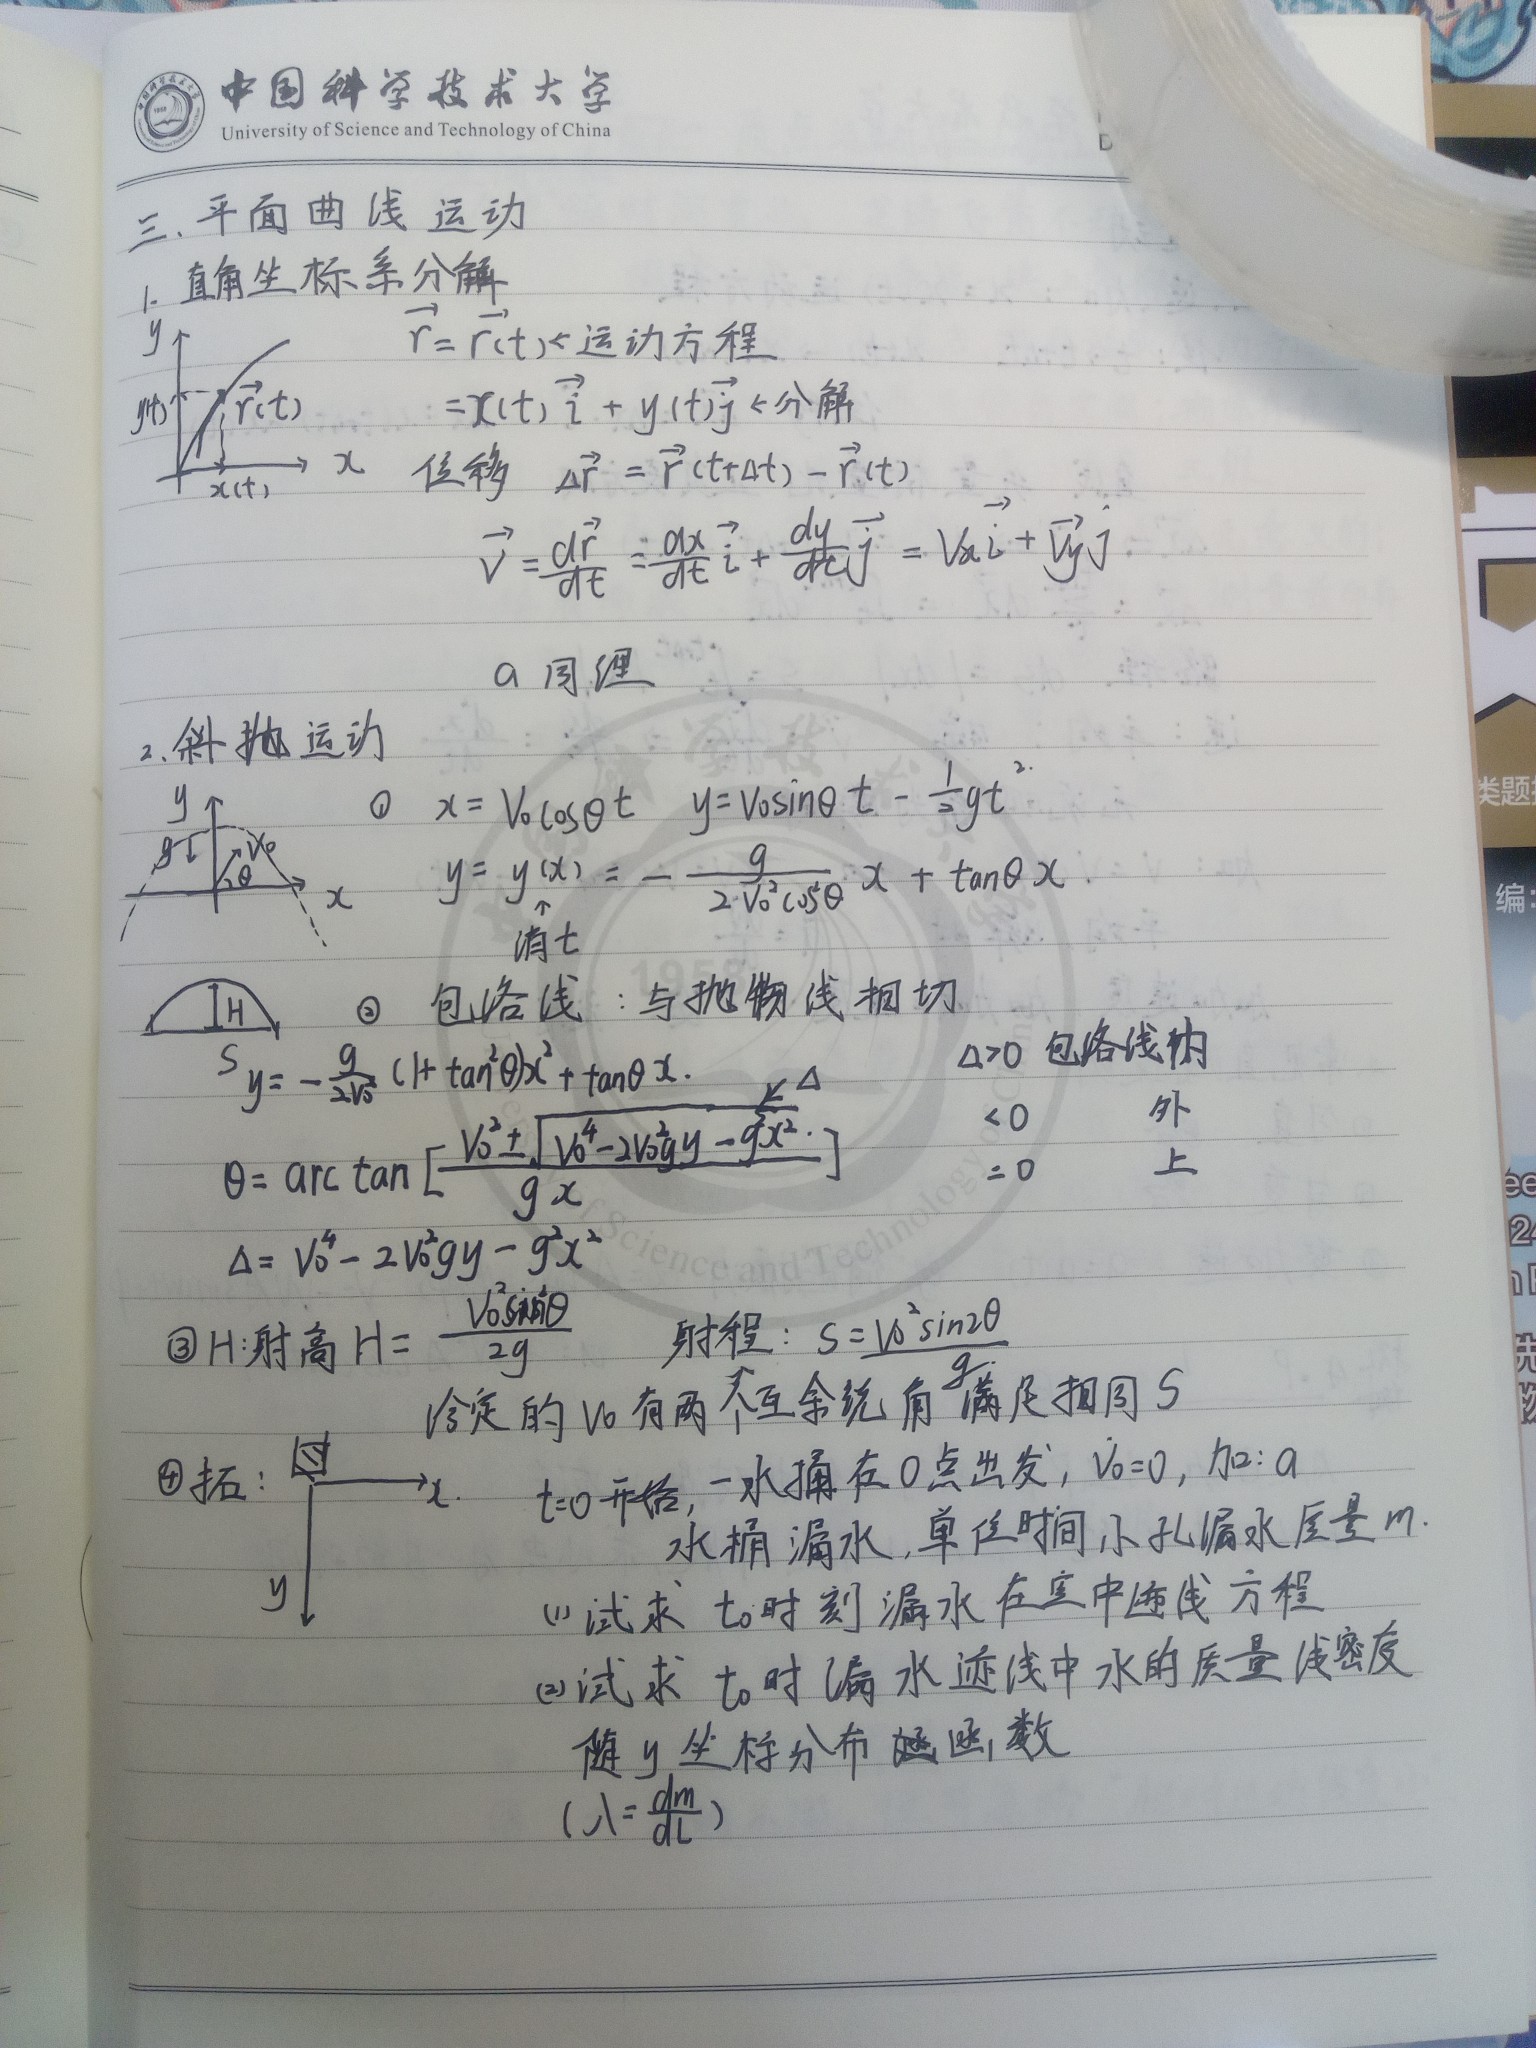 中国科学技术大学
University of Science and Technology of China
三、平面曲线运动
1. 直角坐标系分解
y
y(t)
r⃗(t)
x(t)
x
r⃗ = r⃗(t) ← 运动方程
= x(t) i⃗ + y(t) j⃗ ← 分解
位移 Δr⃗ = r⃗(t+Δt) - r⃗(t)
v⃗ = dr⃗/dt = dx/dt i⃗ + dy/dt j⃗ = Vx i⃗ + Vy j⃗
a 同理
2. 斜抛运动
y
g
V₀
θ
x
① x = V₀cosθ t y = V₀sinθ t - 1/2 gt²
y = y(x) = - g/(2V₀²cos²θ) x + tanθ x
↑
消t
H
S
② 包络线：与抛物线相切
y = - g/(2V₀²) (1+tan²θ)x² + tanθ x.
Δ>0 包络线内
<0 外
=0 上
θ = arctan [ (V₀² ± √(V₀⁴ - 2V₀²gy - g²x²)) / gx ]
Δ
Δ = V₀⁴ - 2V₀²gy - g²x²
③ H:射高 H = V₀²sin²θ/2g 射程：S = V₀²sin2θ/g
给定的V₀有两个互余角满足相同S
④ 拓：
x
y
t=0开始，一水桶在O点出发，V₀=0，加：a
水桶漏水，单位时间小孔漏水质量m.
(1) 试求 t₀时刻漏水在空中迹线方程
(2) 试求 t₀时漏水迹线中水的质量线密度
随y坐标分布函数
(λ = dm/dL)
1958
Science and Technology of
类题
编：